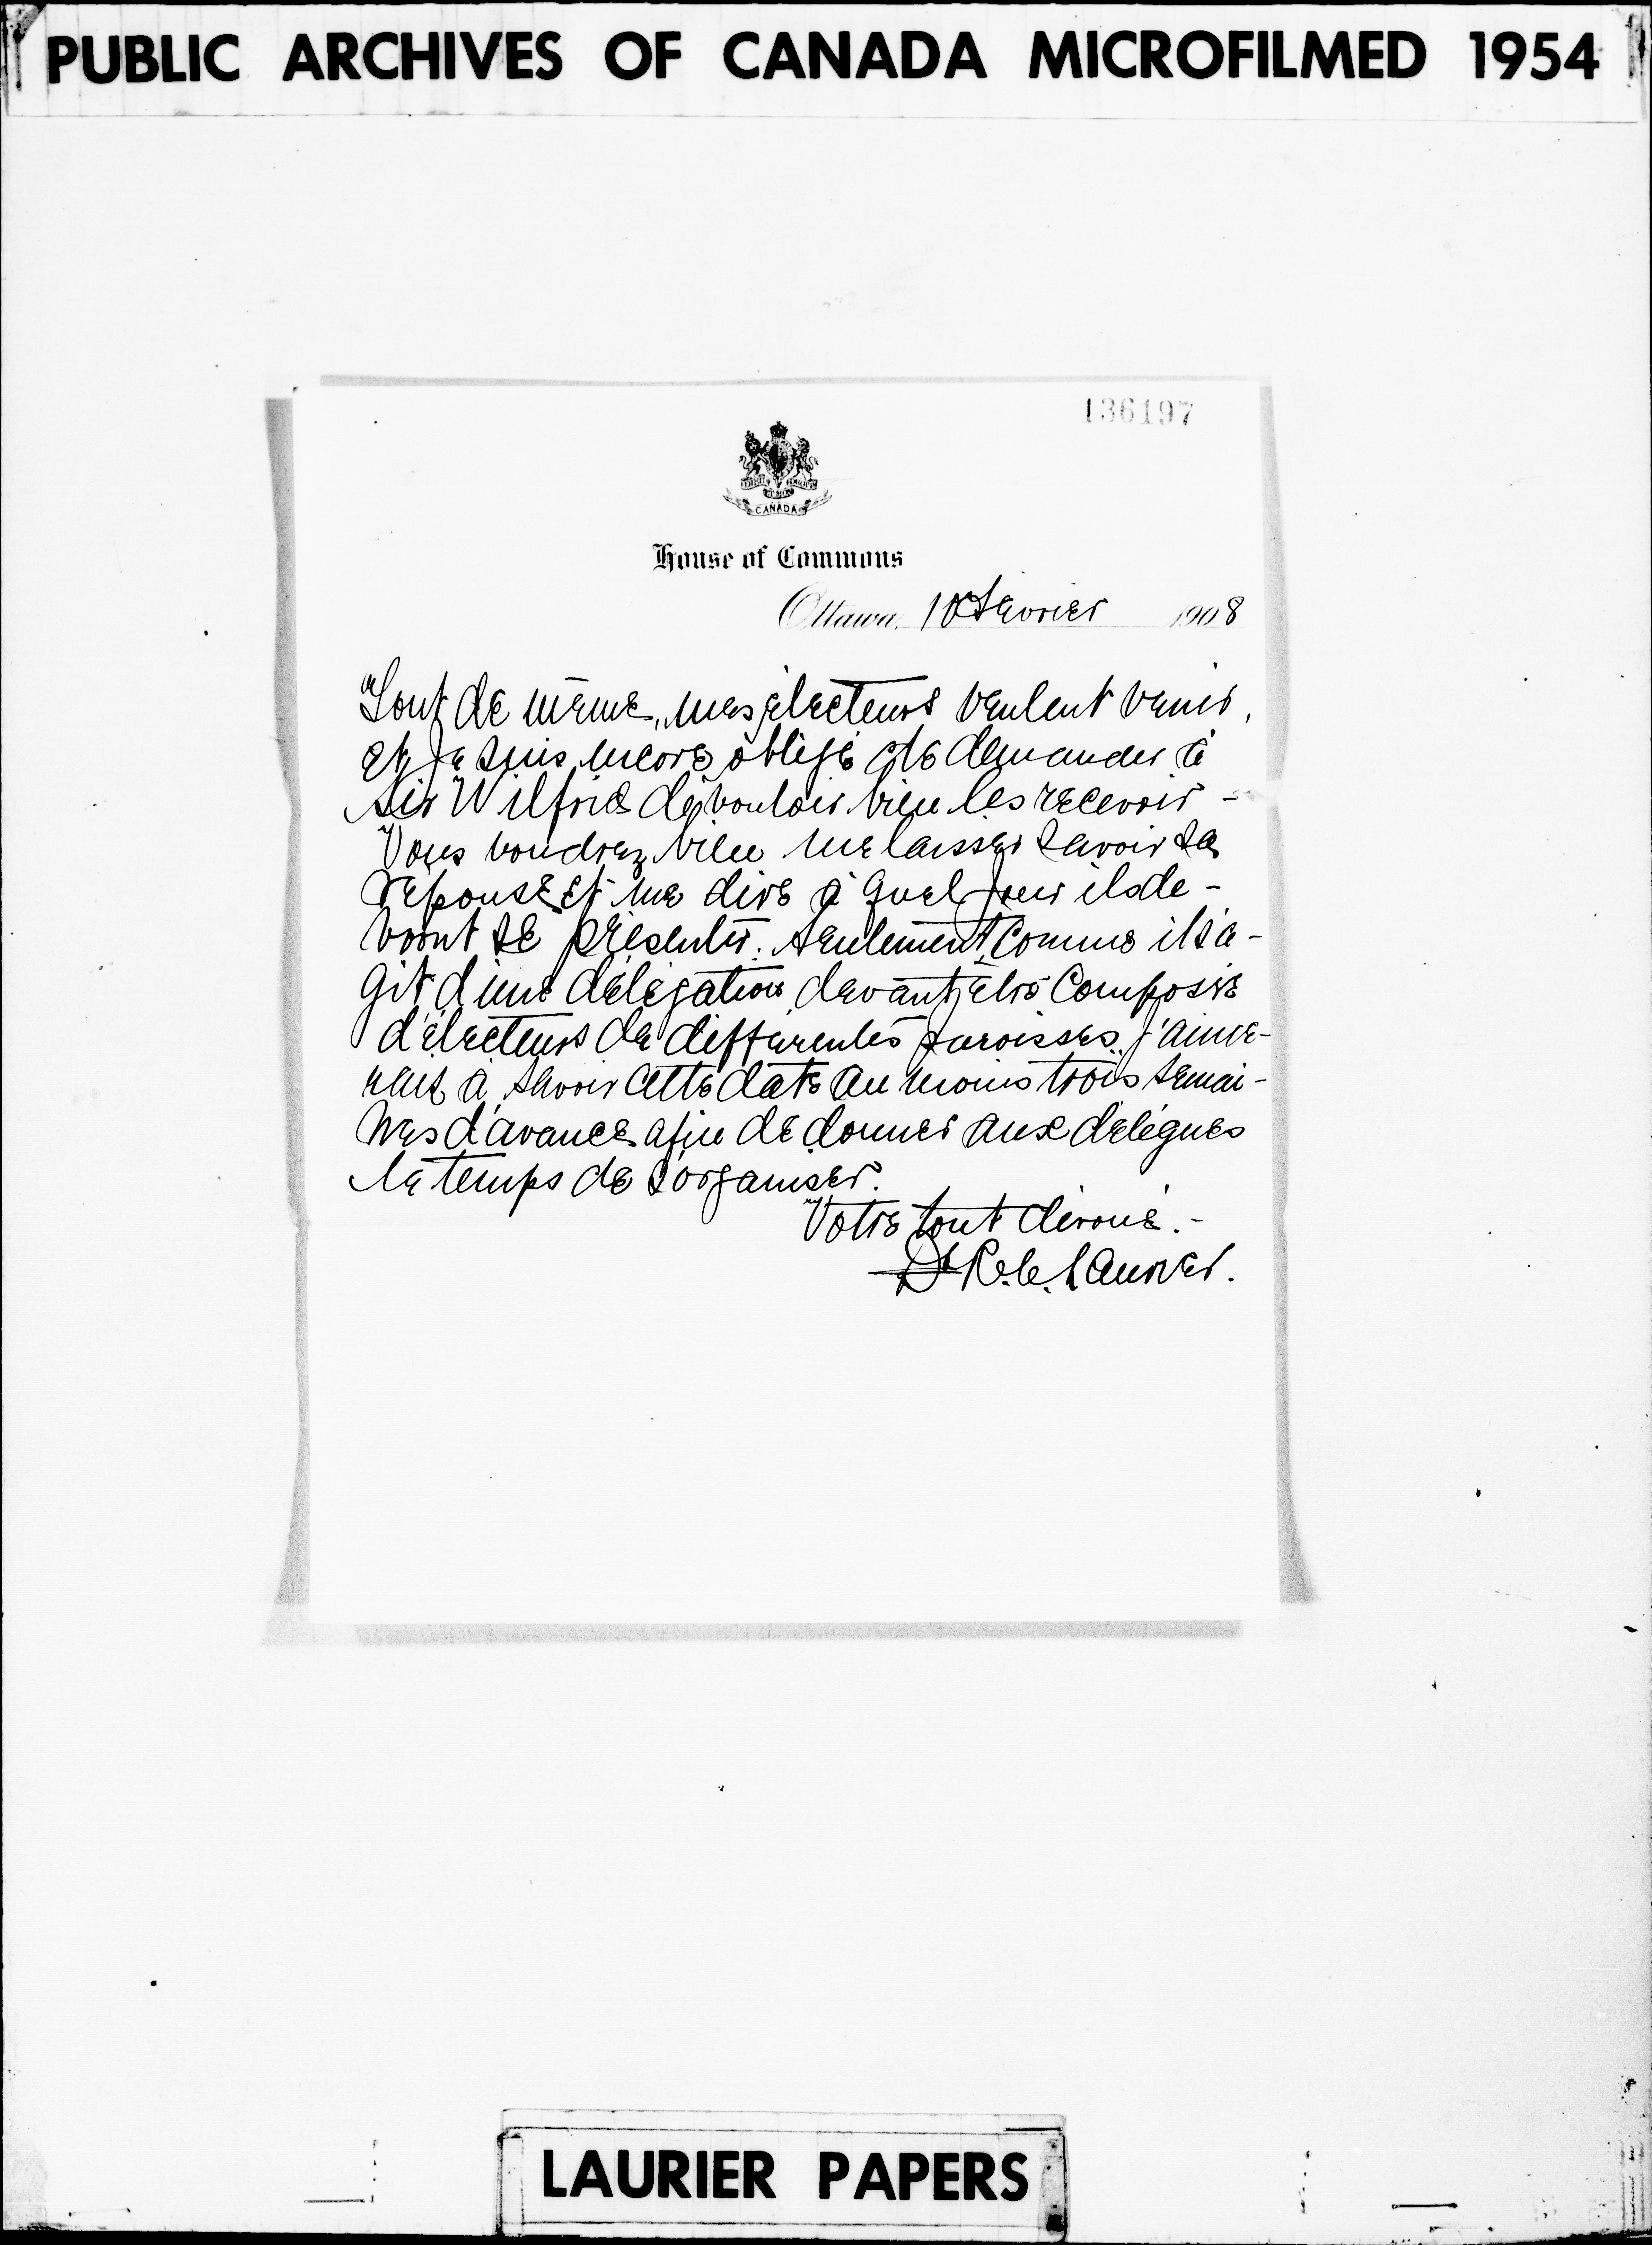 PUBLIC ARCHIVES OF CANADA MICROFILMED 1954
136197
CANADA
House of Commons
Ottawa, 10 février 1908
Tout de même, mes électeurs veulent venir,
et je suis encore obligé de demander à
Sir Wilfrid de vouloir bien les recevoir -
Vous voudrez bien me laisser savoir sa
réponse et me dire à quel jour ils de-
vront se présenter. Seulement, comme il s'a-
git d'une délégation devant être composée
d'électeurs de différentes paroisses, j'aime-
rais à savoir cette date au moins trois semai-
nes d'avance afin de donner aux délégués
le temps de s'organiser.
Votre tout dévoué.-
Dr P. C.
LAURIER PAPERS